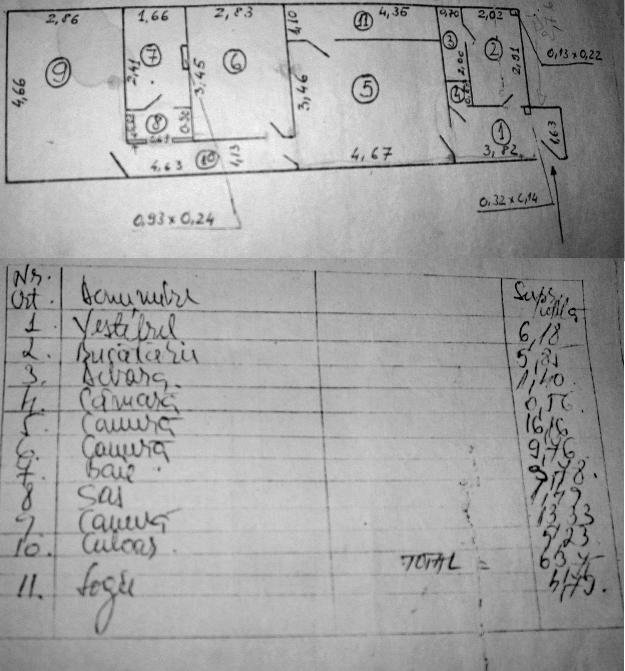 2,86 1,66 2,83 1,10 11 4,35 0,70 2,02
9 7 6 3 2
4,66 2,41 3,45 3,46 5 2,00 2,91
0,13 x 0,22
8 1 1,63
4,63 10 4,13 4,67 3,82
0,93 x 0,24 0,32 x 0,14
Nr. crt. Denumire Supr. utila
1 Vestibul 6,18
2. Bucatarie 5,81
3. Debara 1,40
4. Cămară 0,56
5. Cameră 16,16
6. Cameră 9,76
7. Baie
8 Sas 1,79
9 Cameră 13,33
10. Culoar 5,23
TOTAL =
11. Logie 4,79.